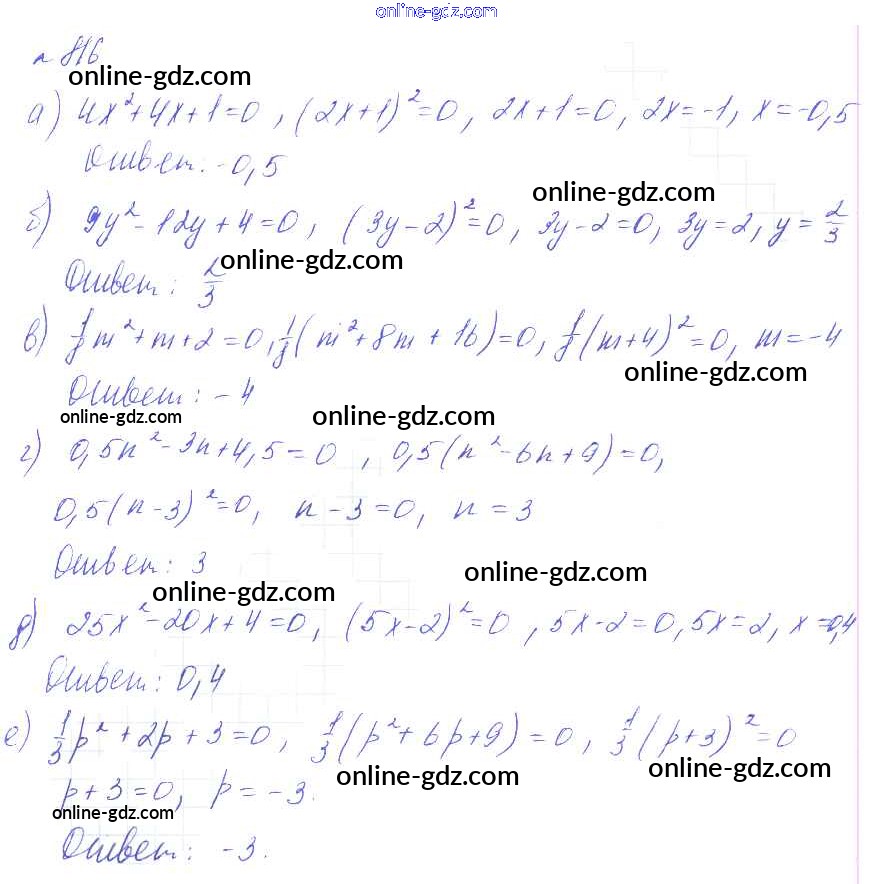 online-gdz.com
№ 816
online-gdz.com
а) 4x²+4x+1=0, (2x+1)²=0, 2x+1=0, 2x=-1, x=-0,5
Ответ: -0,5
online-gdz.com
б) 9y²-12y+4=0, (3y-2)²=0, 3y-2=0, 3y=2, y=2/3
Ответ: 2/3
online-gdz.com
в) 1/8m²+m+2=0, 1/8(m²+8m+16)=0, 1/8(m+4)²=0, m=-4
online-gdz.com
Ответ: -4
online-gdz.com
online-gdz.com
г) 0,5n²-3n+4,5=0, 0,5(n²-6n+9)=0,
0,5(n-3)²=0, n-3=0, n=3
Ответ: 3
online-gdz.com
online-gdz.com
д) 25x²-20x+4=0, (5x-2)²=0, 5x-2=0, 5x=2, x=0,4
Ответ: 0,4
е) 1/3p²+2p+3=0, 1/3(p²+6p+9)=0, 1/3(p+3)²=0
online-gdz.com
online-gdz.com
p+3=0, p=-3.
online-gdz.com
Ответ: -3.